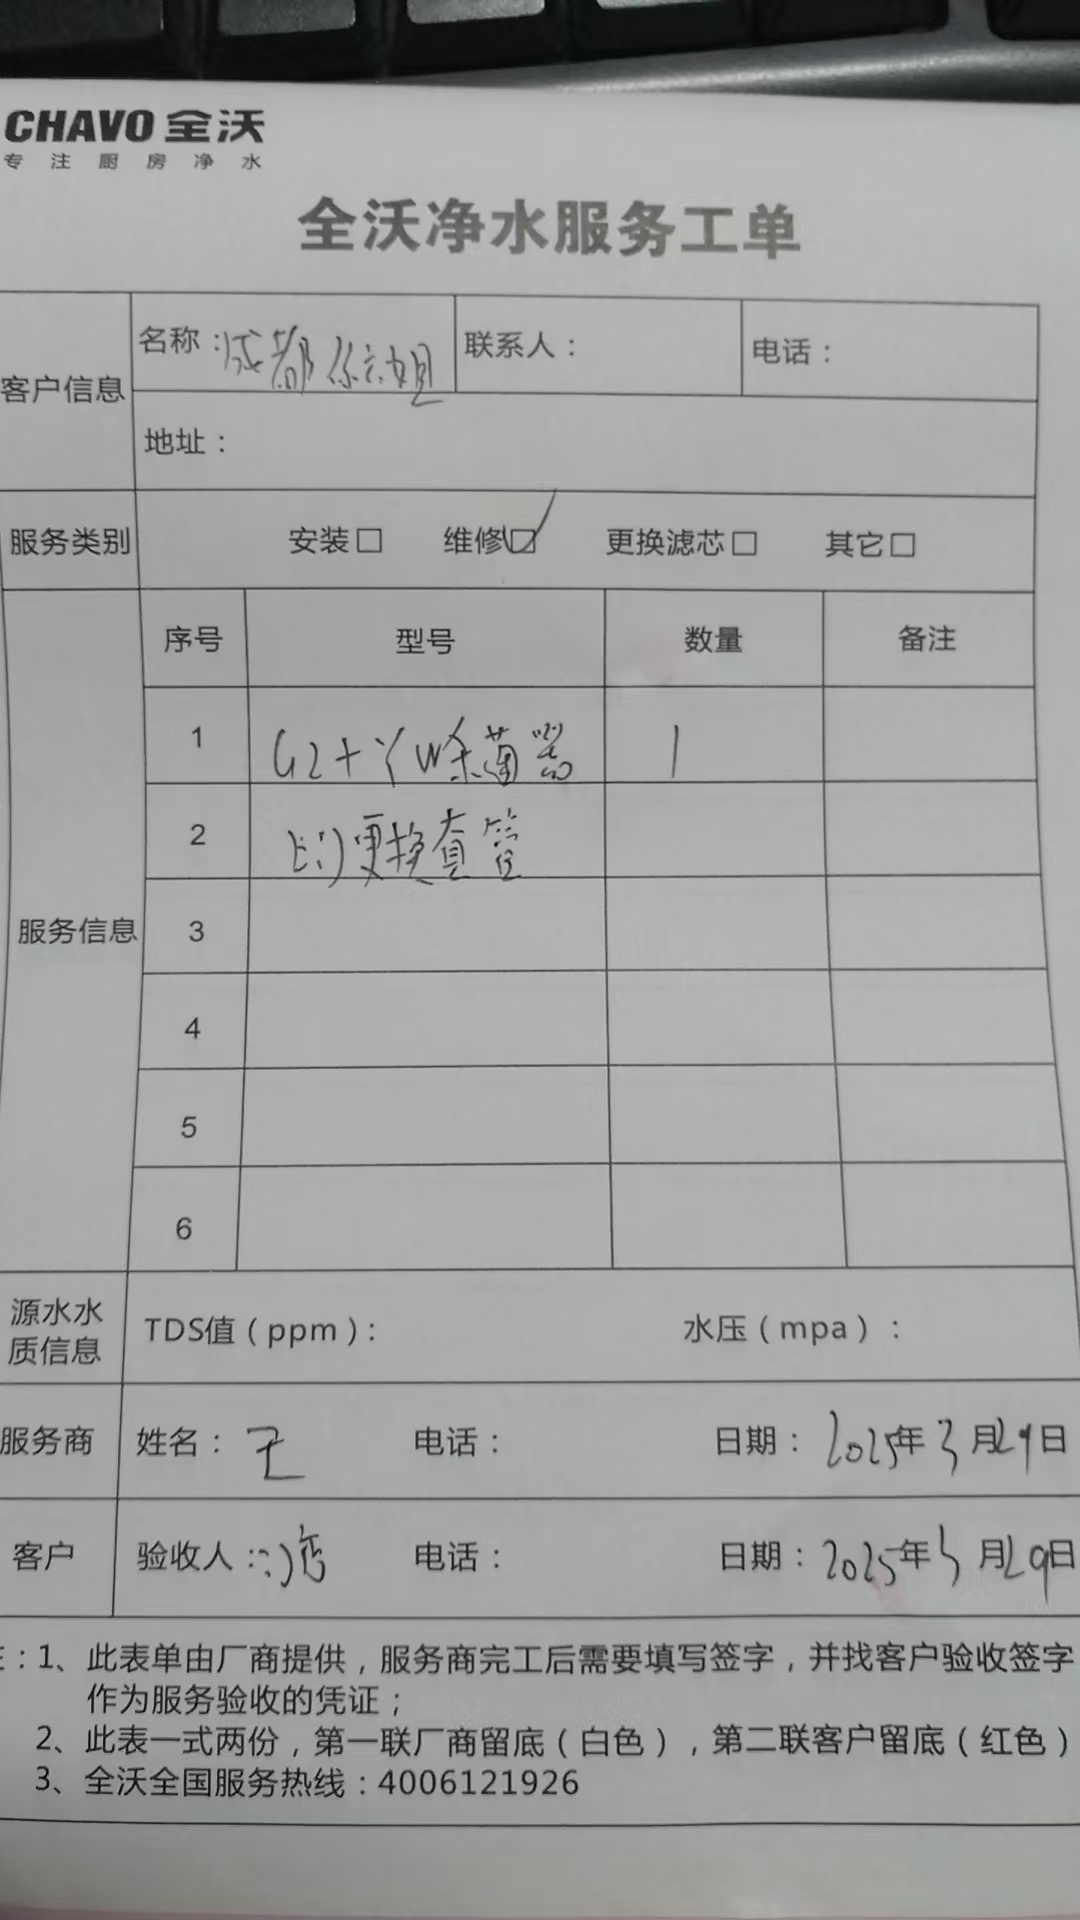 CHAVO 全沃
专注厨房净水
全沃净水服务工单
客户信息
名称：成都 姐
联系人：
电话：
地址：
服务类别
安装□ 维修☑ 更换滤芯□ 其它□
服务信息
序号 型号 数量 备注
1 G2+ 杀菌器 1
2 更换 管
3
4
5
6
源水水质信息
TDS值（ppm）：
水压（mpa）：
服务商
姓名：
电话：
日期：2025年3月29日
客户
验收人：
电话：
日期：2025年3月29日
：1、此表单由厂商提供，服务商完工后需要填写签字，并找客户验收签字
作为服务验收的凭证；
2、此表一式两份，第一联厂商留底（白色），第二联客户留底（红色）
3、全沃全国服务热线：4006121926